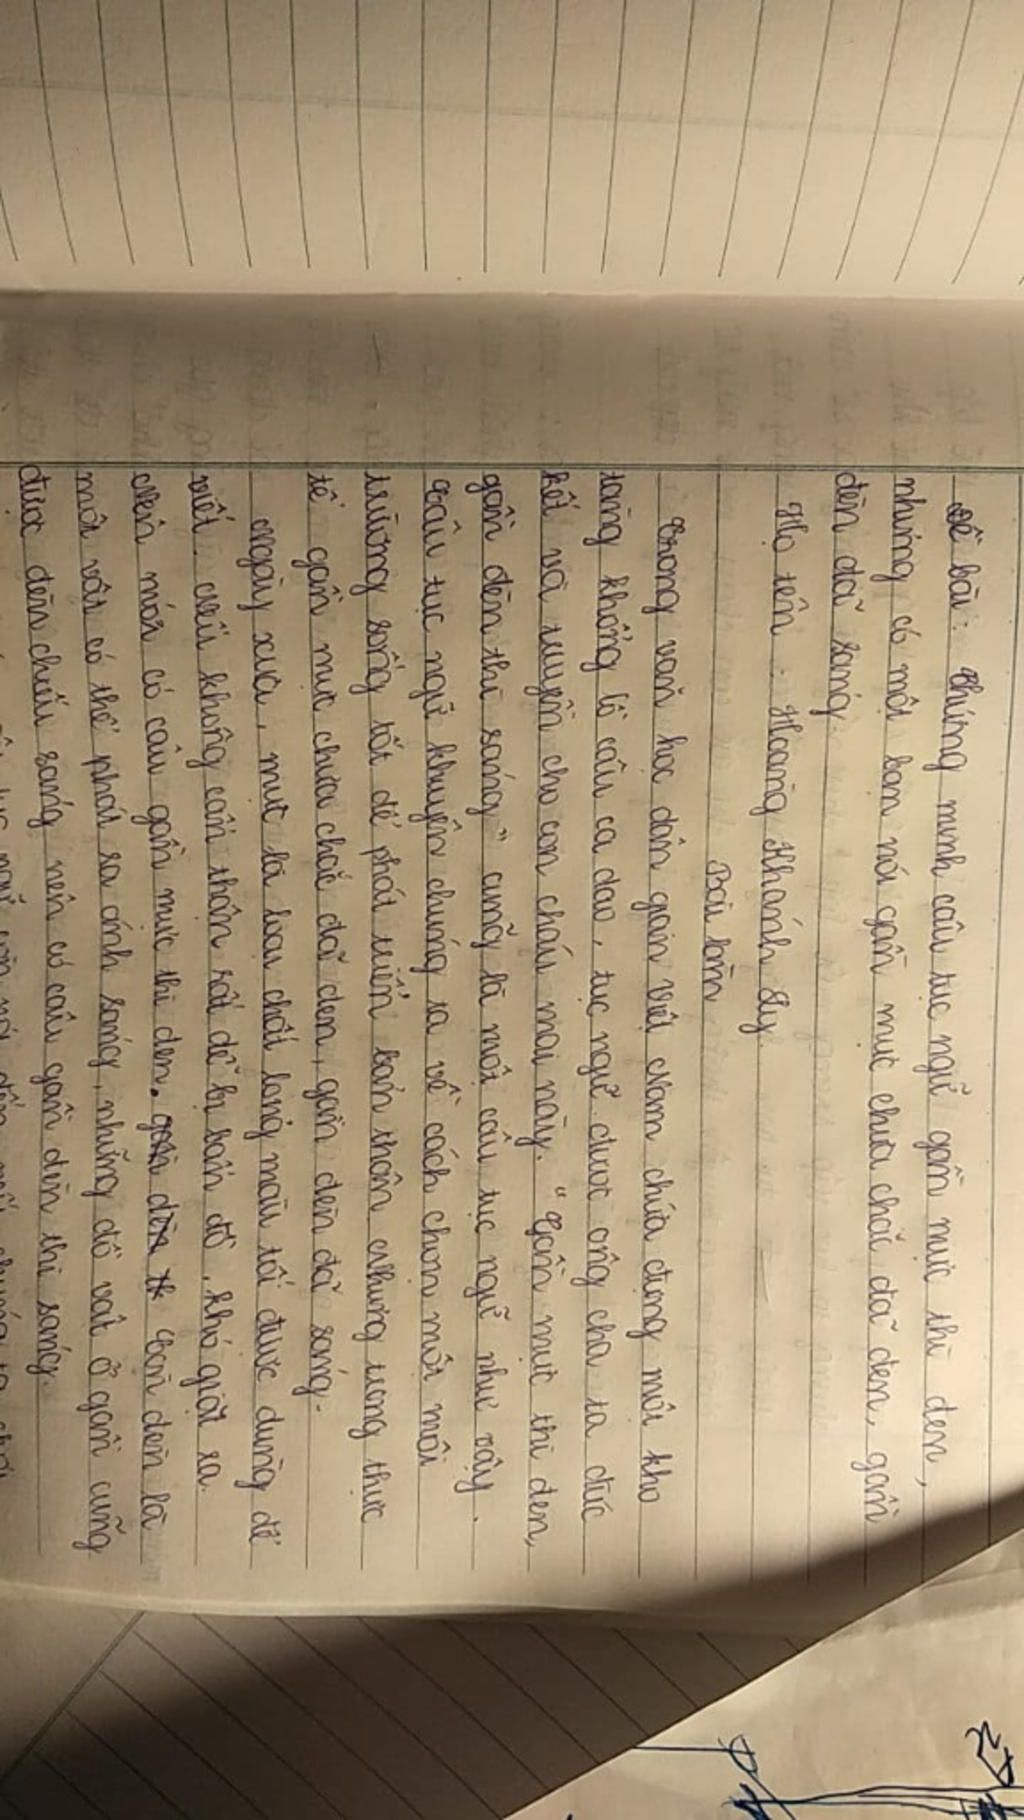 Đề bài: Chứng minh câu tục ngữ gần mực thì đen,
nhưng có một bạn nói gần mực chưa chắc đã đen, gần
đèn đã sáng.
Họ tên: Hoàng Khánh Ly.
Bài làm
Trong văn học dân gian Việt Nam chứa đựng một kho
tàng khổng lồ câu ca dao, tục ngữ được ông cha ta đúc
kết và truyền cho con cháu mai này. "Gần mực thì đen,
gần đèn thì sáng" cũng là một câu tục ngữ như vậy.
Câu tục ngữ khuyên chúng ta về cách chọn một môi
trường sống tốt để phát triển bản thân. Nhưng trong thực
tế gần mực chưa chắc đã đen, gần đèn đã sáng.
Ngày xưa, mực là loại chất lỏng màu tối được dùng để
viết. Nếu không cẩn thận rất dễ bị bẩn đồ, khó giặt ra.
Nên mới có câu gần mực thì đen. Còn đèn là
một vật có thể phát ra ánh sáng, những đồ vật ở gần cũng
được đèn chiếu sáng nên có câu gần đèn thì sáng.